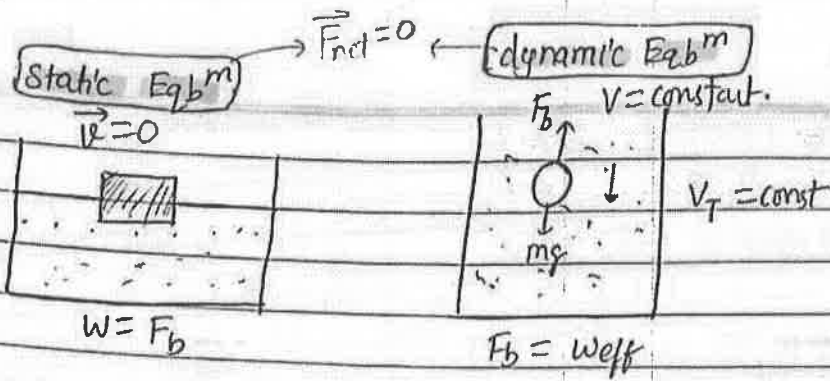 F⃗net = 0
Static Eqbᵐ
dynamic Eqbᵐ
v⃗ = 0
V = constant.
Fb
mg
V_T = const
W = Fb
Fb = Weff